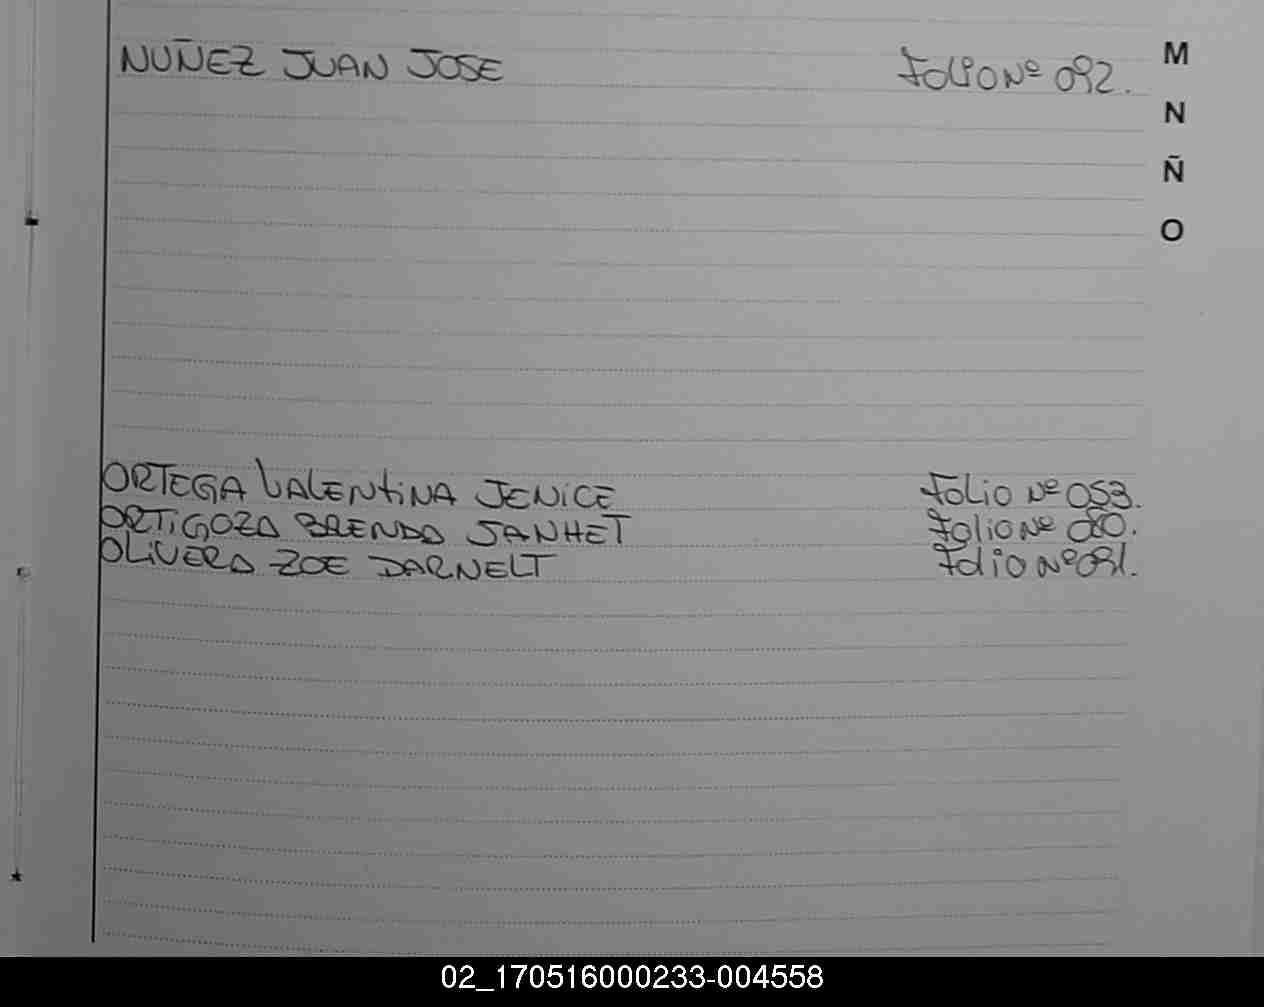 NUÑEZ JUAN JOSE Folio Nº 092.
M
N
Ñ
O
ORTEGA VALENTINA JENICE Folio Nº 053.
ORTIGOZA BRENDA JANHET Folio Nº 080.
OLIVERA ZOE DARNELT Folio Nº 091.
02_170516000233-004558